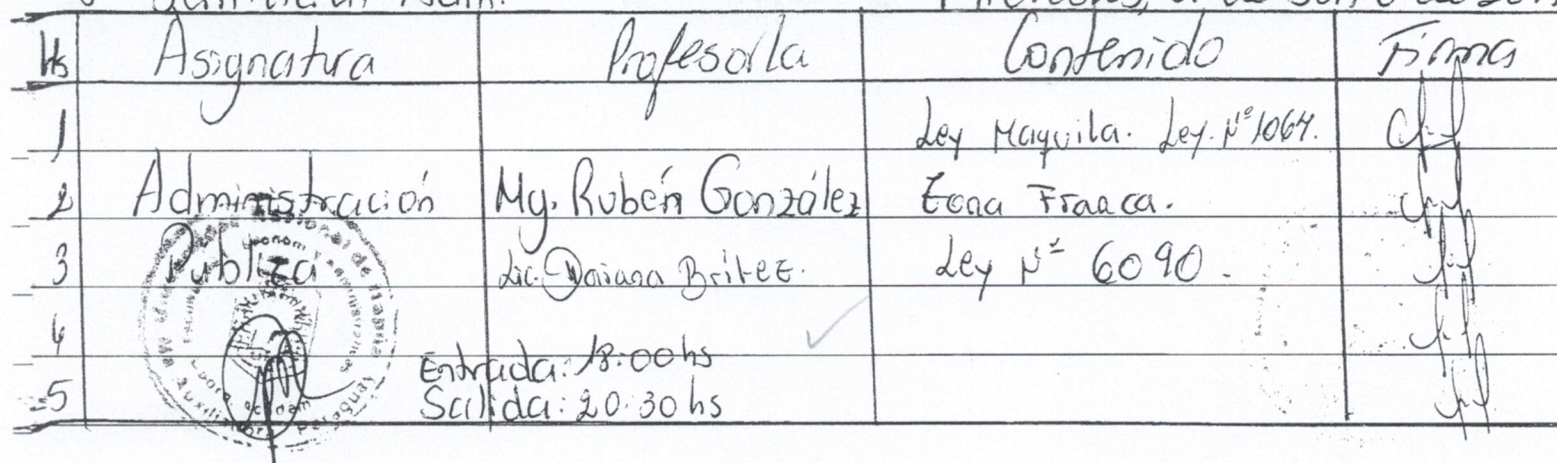 Hs Asignatura Profesor/a Contenido Firma
1 Ley Maquila. Ley. Nº 1064.
2 Administración Mg. Rubén González Zona Franca.
3 Publica Lic. Daiana Britez. Ley Nº 6090.
4
Entrada: 18:00 hs
5 Salida: 20:30 hs